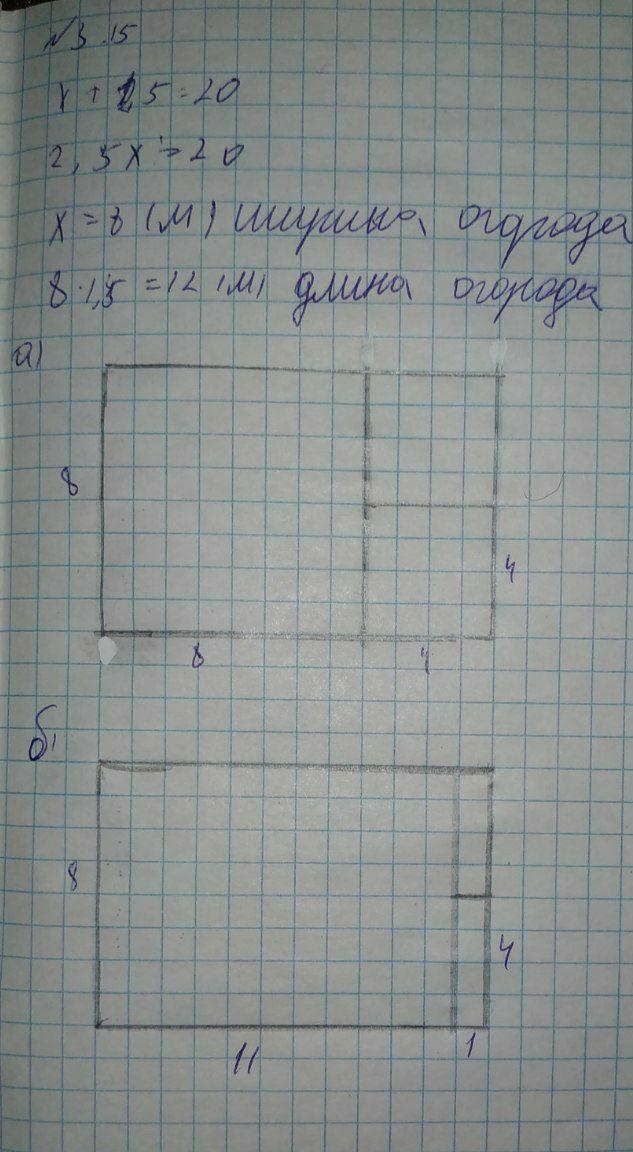 №3.15
x + 1,5 = 20
2,5x = 20
x = 8 (м) ширина огорода
8·1,5 = 12 (м) длина огорода
а)
8
4
8
4
б)
8
4
11
1